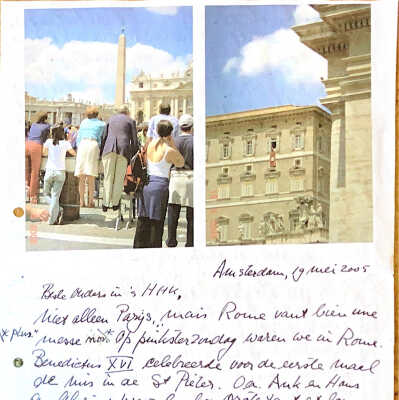 Amsterdam, 19 mei 2005
Beste Ouders in 's HHK,
Niet alleen Parijs, mais Rome vaut bien une
"x plus" messe * Op pinksterzondag waren we in Rome.
Benedictus XVI celebreerde voor de eerste maal
de mis in de St Pieter. Oa. Ank en Hans